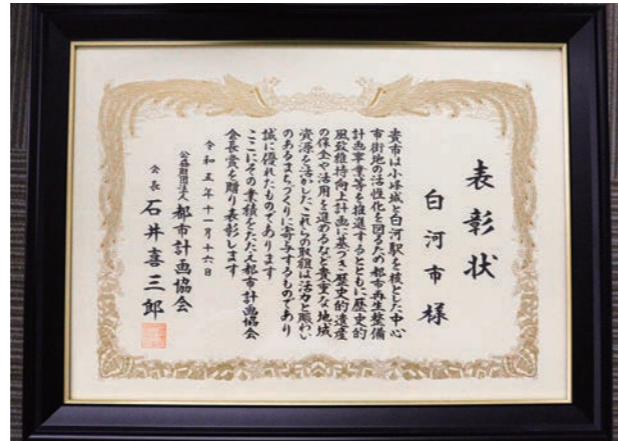 表彰状
白河市様
貴市は小峰城と白河駅を核とした中心
市街地の活性化を図るため都市再生整備
計画事業等を推進するとともに歴史的
風致維持向上計画に基づき歴史的遺産
の保全や活用を進めるなど貴重な地域
資源を活かしたこれらの取組は活力と賑わい
のあるまちづくりに寄与するものであり
誠に優れたものであります
ここにその業績をたたえ都市計画協会
会長賞を贈り表彰します
令和五年十一月十六日
公益財団法人 都市計画協会
会長 石井喜三郎